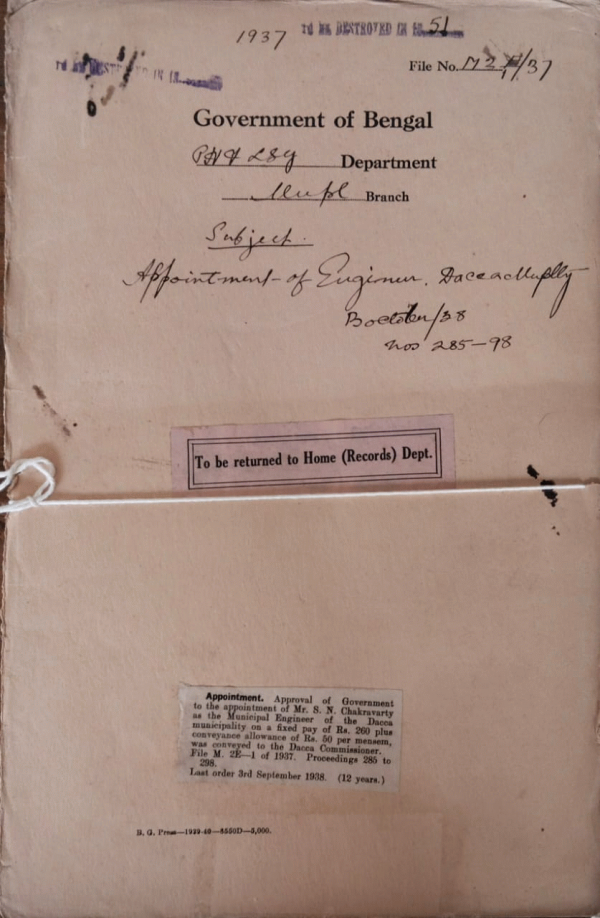 1937
TO BE DESTROYED IN 19 51
TO BE DESTROYED IN 19
File No. M 2E/1/37
Government of Bengal
PH & LSG Department
Mupl Branch
Subject.
Appointment of Engineer, Dacca Muplty
B October/38
Nos 285-98
To be returned to Home (Records) Dept.
Appointment. Approval of Government
to the appointment of Mr. S. N. Chakravarty
as the Municipal Engineer of the Dacca
municipality on a fixed pay of Rs. 260 plus
conveyance allowance of Rs. 50 per mensem,
was conveyed to the Dacca Commissioner.
File M. 2E—1 of 1937. Proceedings 285 to
298.
Last order 3rd September 1938. (12 years.)
B. G. Press—1939-40—8550D—5,000.